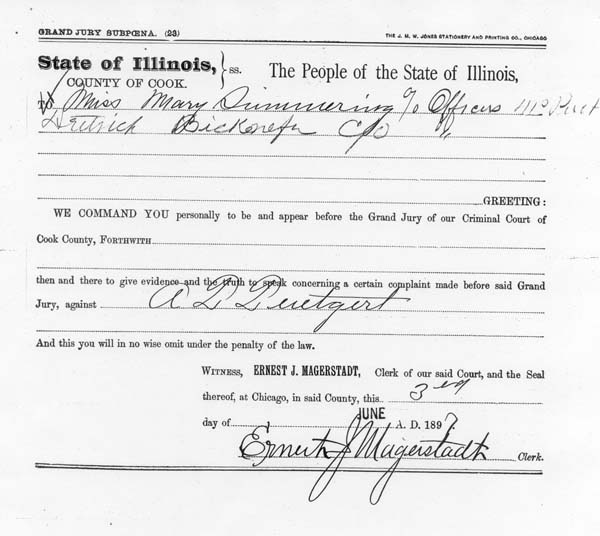 GRAND JURY SUBPŒNA. (23) THE J. M. W. JONES STATIONERY AND PRINTING CO., CHICAGO
State of Illinois, } ss. The People of the State of Illinois,
COUNTY OF COOK.
To Miss Mary Simmering c/o Officers
Dietrich Bicknese C/O "
GREETING:
WE COMMAND YOU personally to be and appear before the Grand Jury of our Criminal Court of
Cook County, FORTHWITH
then and there to give evidence and the truth to speak concerning a certain complaint made before said Grand
Jury, against A L Luetgert
And this you will in no wise omit under the penalty of the law.
WITNESS, ERNEST J. MAGERSTADT, Clerk of our said Court, and the Seal
thereof, at Chicago, in said County, this 3rd
day of JUNE A. D. 1897
Ernest J Magerstadt Clerk.